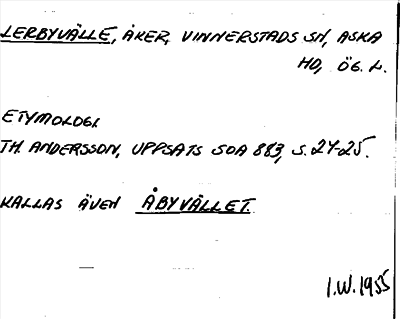 LERBYVÄLLE, ÅKER, VINNERSTADS SN, ASKA
HD, ÖG. L.
ETYMOLOGI.
TH. ANDERSSON, UPPSATS SOA 883, S. 24-25.
KALLAS ÄVEN ÅBYVÄLLET.
I.W. 1955